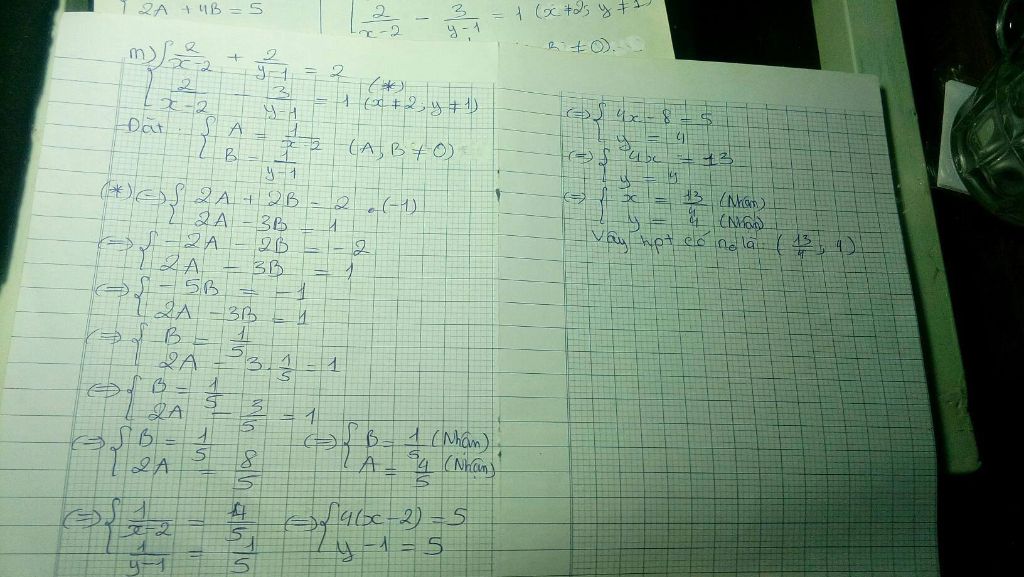 2A + 4B = 5
2/(x-2) - 3/(y-1) = 1 (x≠2; y≠1)
≠0).
m) { 2/(x-2) + 2/(y-1) = 2
2/(x-2) - 3/(y-1) = 1 (*) (x≠2, y≠1)
Đặt { A = 1/(x-2)
B = 1/(y-1) (A, B ≠ 0)
(*) <=> { 2A + 2B = 2 .(-1)
2A - 3B = 1
<=> { -2A - 2B = -2
2A - 3B = 1
<=> { -5B = -1
2A - 3B = 1
<=> { B = 1/5
2A - 3.1/5 = 1
<=> { B = 1/5
2A - 3/5 = 1
<=> { B = 1/5
2A = 8/5
<=> { B = 1/5 (Nhận)
A = 4/5 (Nhận)
<=> { 1/(x-2) = 4/5
1/(y-1) = 1/5
<=> { 4(x-2) = 5
y - 1 = 5
<=> { 4x - 8 = 5
y = 4
<=> { 4x = 13
y = 4
<=> { x = 13/4 (Nhận)
y = 4 (Nhận)
Vậy hpt có no là (13/4, 4)